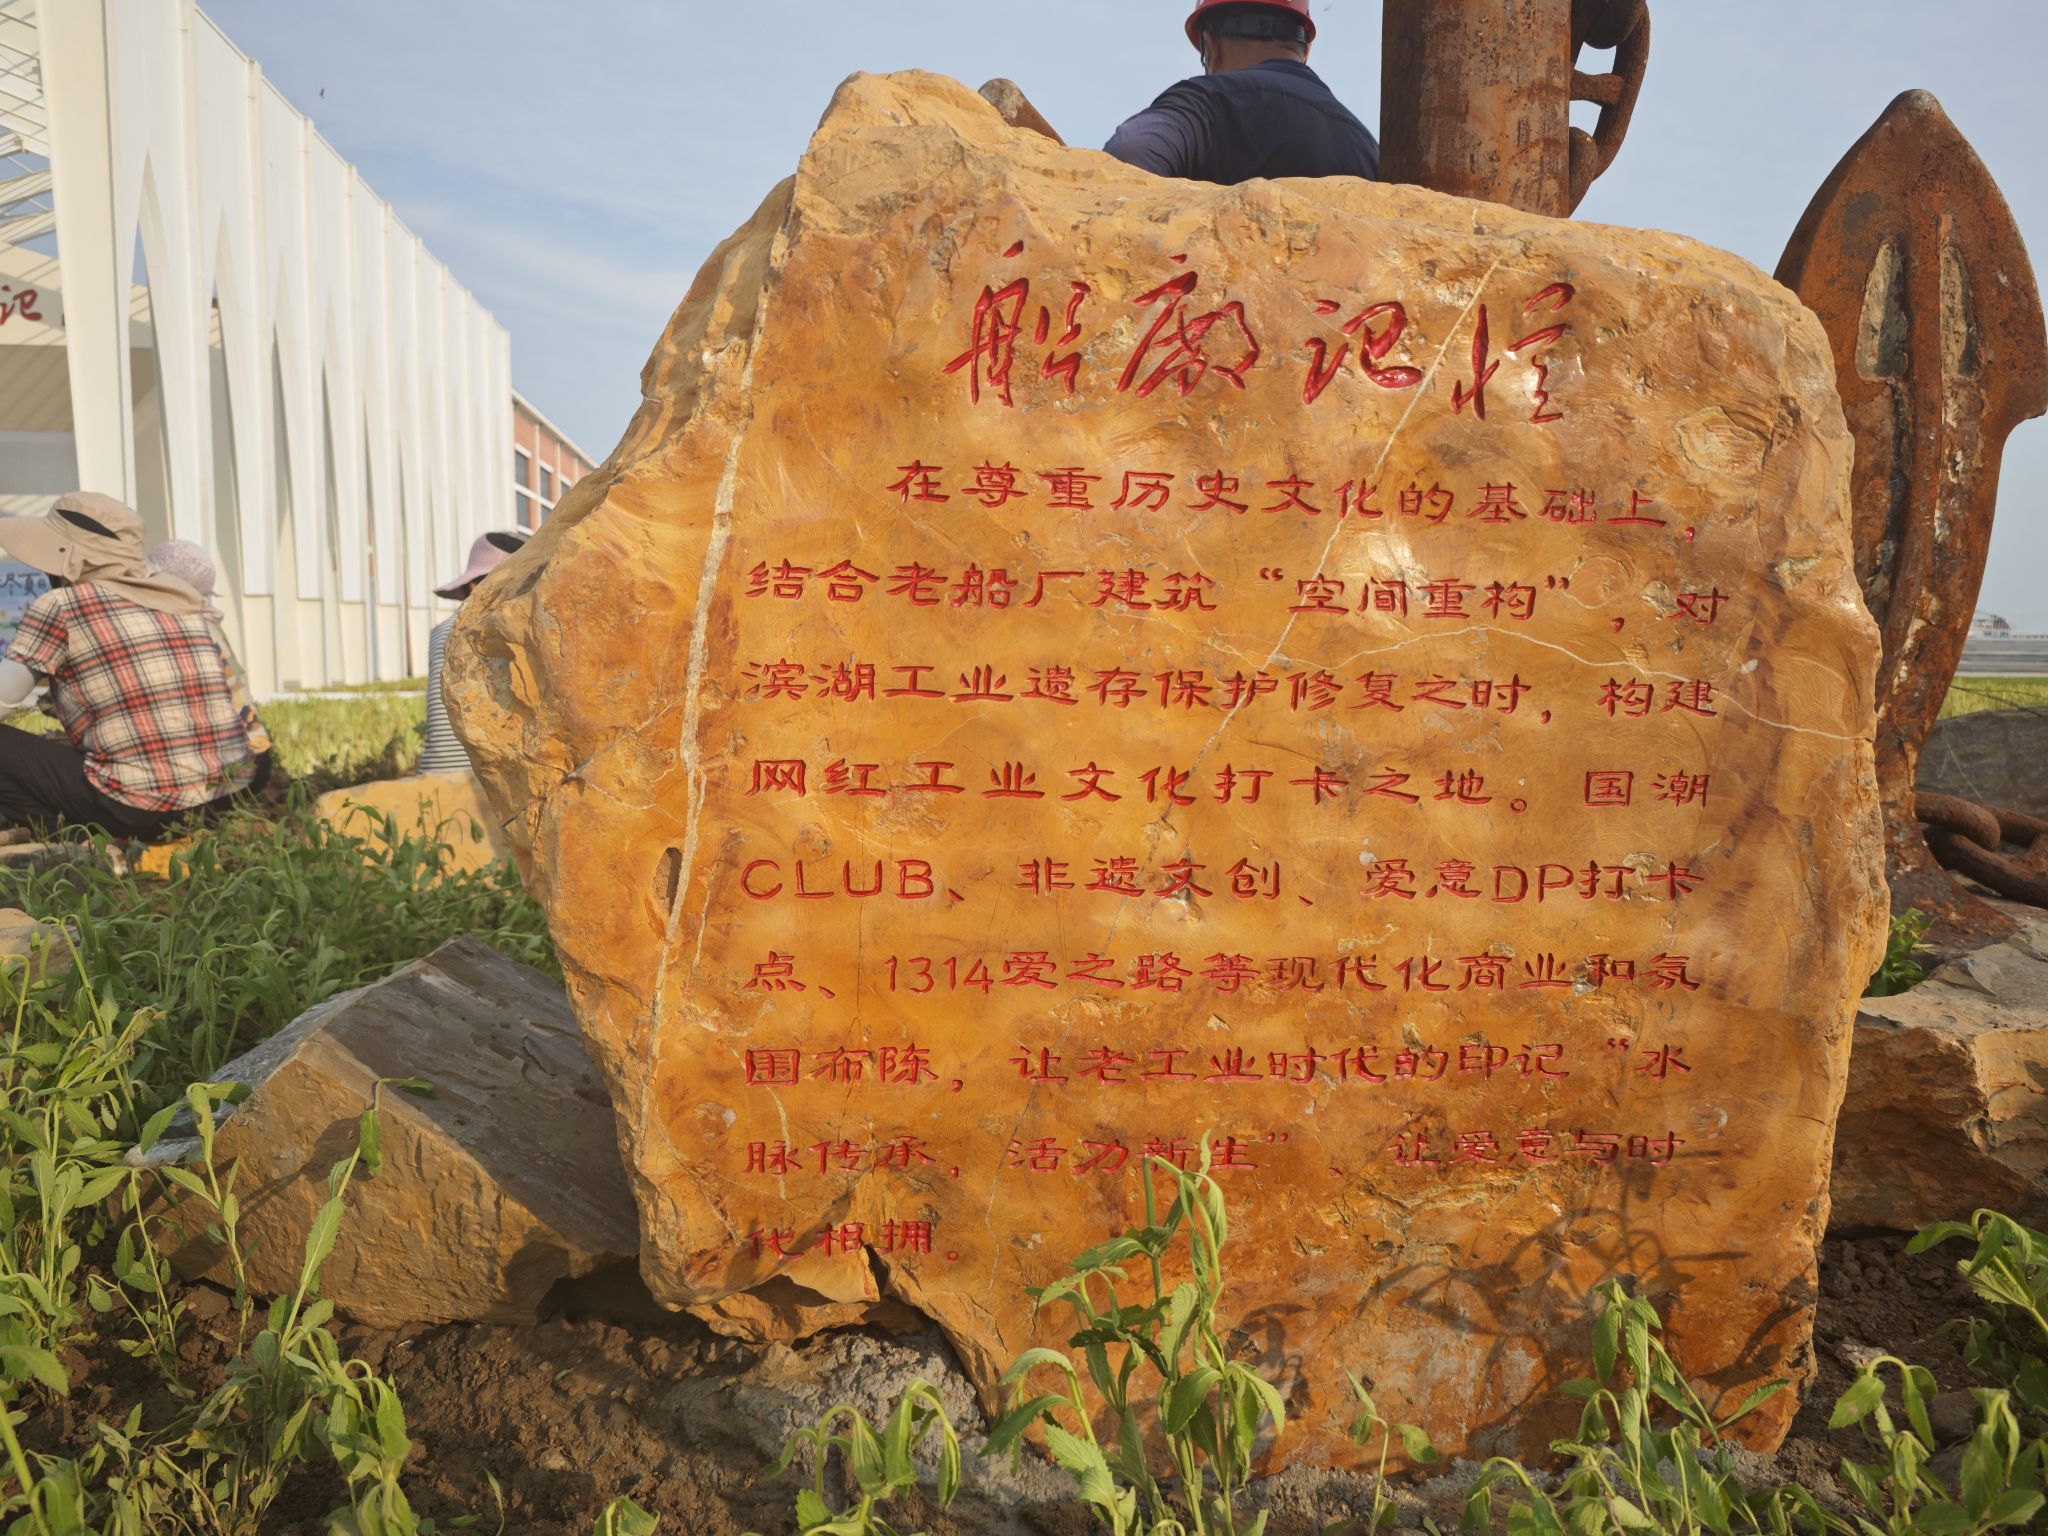 记
船廠记忆
在尊重历史文化的基础上，
结合老船厂建筑“空间重构”，对
滨湖工业遗存保护修复之时，构建
网红工业文化打卡之地。国潮
CLUB、非遗文创、爱意DP打卡
点、1314爱之路等现代化商业和氛
围布陈，让老工业时代的印记“水
脉传承，活力新生”、让爱意与时
代相拥。